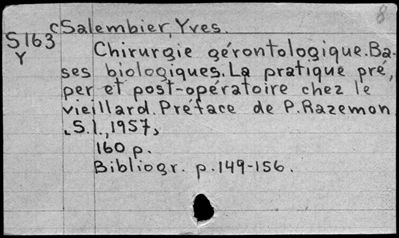 8
cSalembier, Yves.
S163
Y
Chirurgie gérontologique. Ba-
ses biologiques. La pratique pré,
per et post-opératoire chez le
vieillard. Préface de P. Razemon.
S.l., 1957,
160 p.
Bibliogr. p. 149-156.